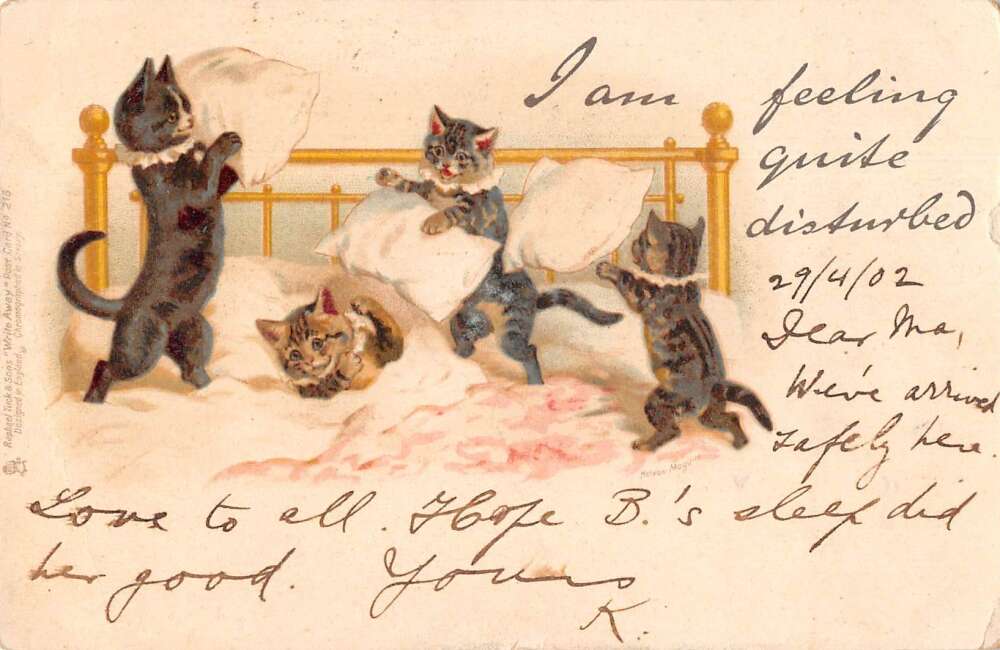 I am feeling
quite
disturbed
29/4/02
Dear Ma,
We've arrived
safely here.
Love to all. Hope B.'s sleep did
her good. Yours
K.
Raphael Tuck & Sons "Write Away" Post Card No 218
Designed in England, Chromographed in Saxony